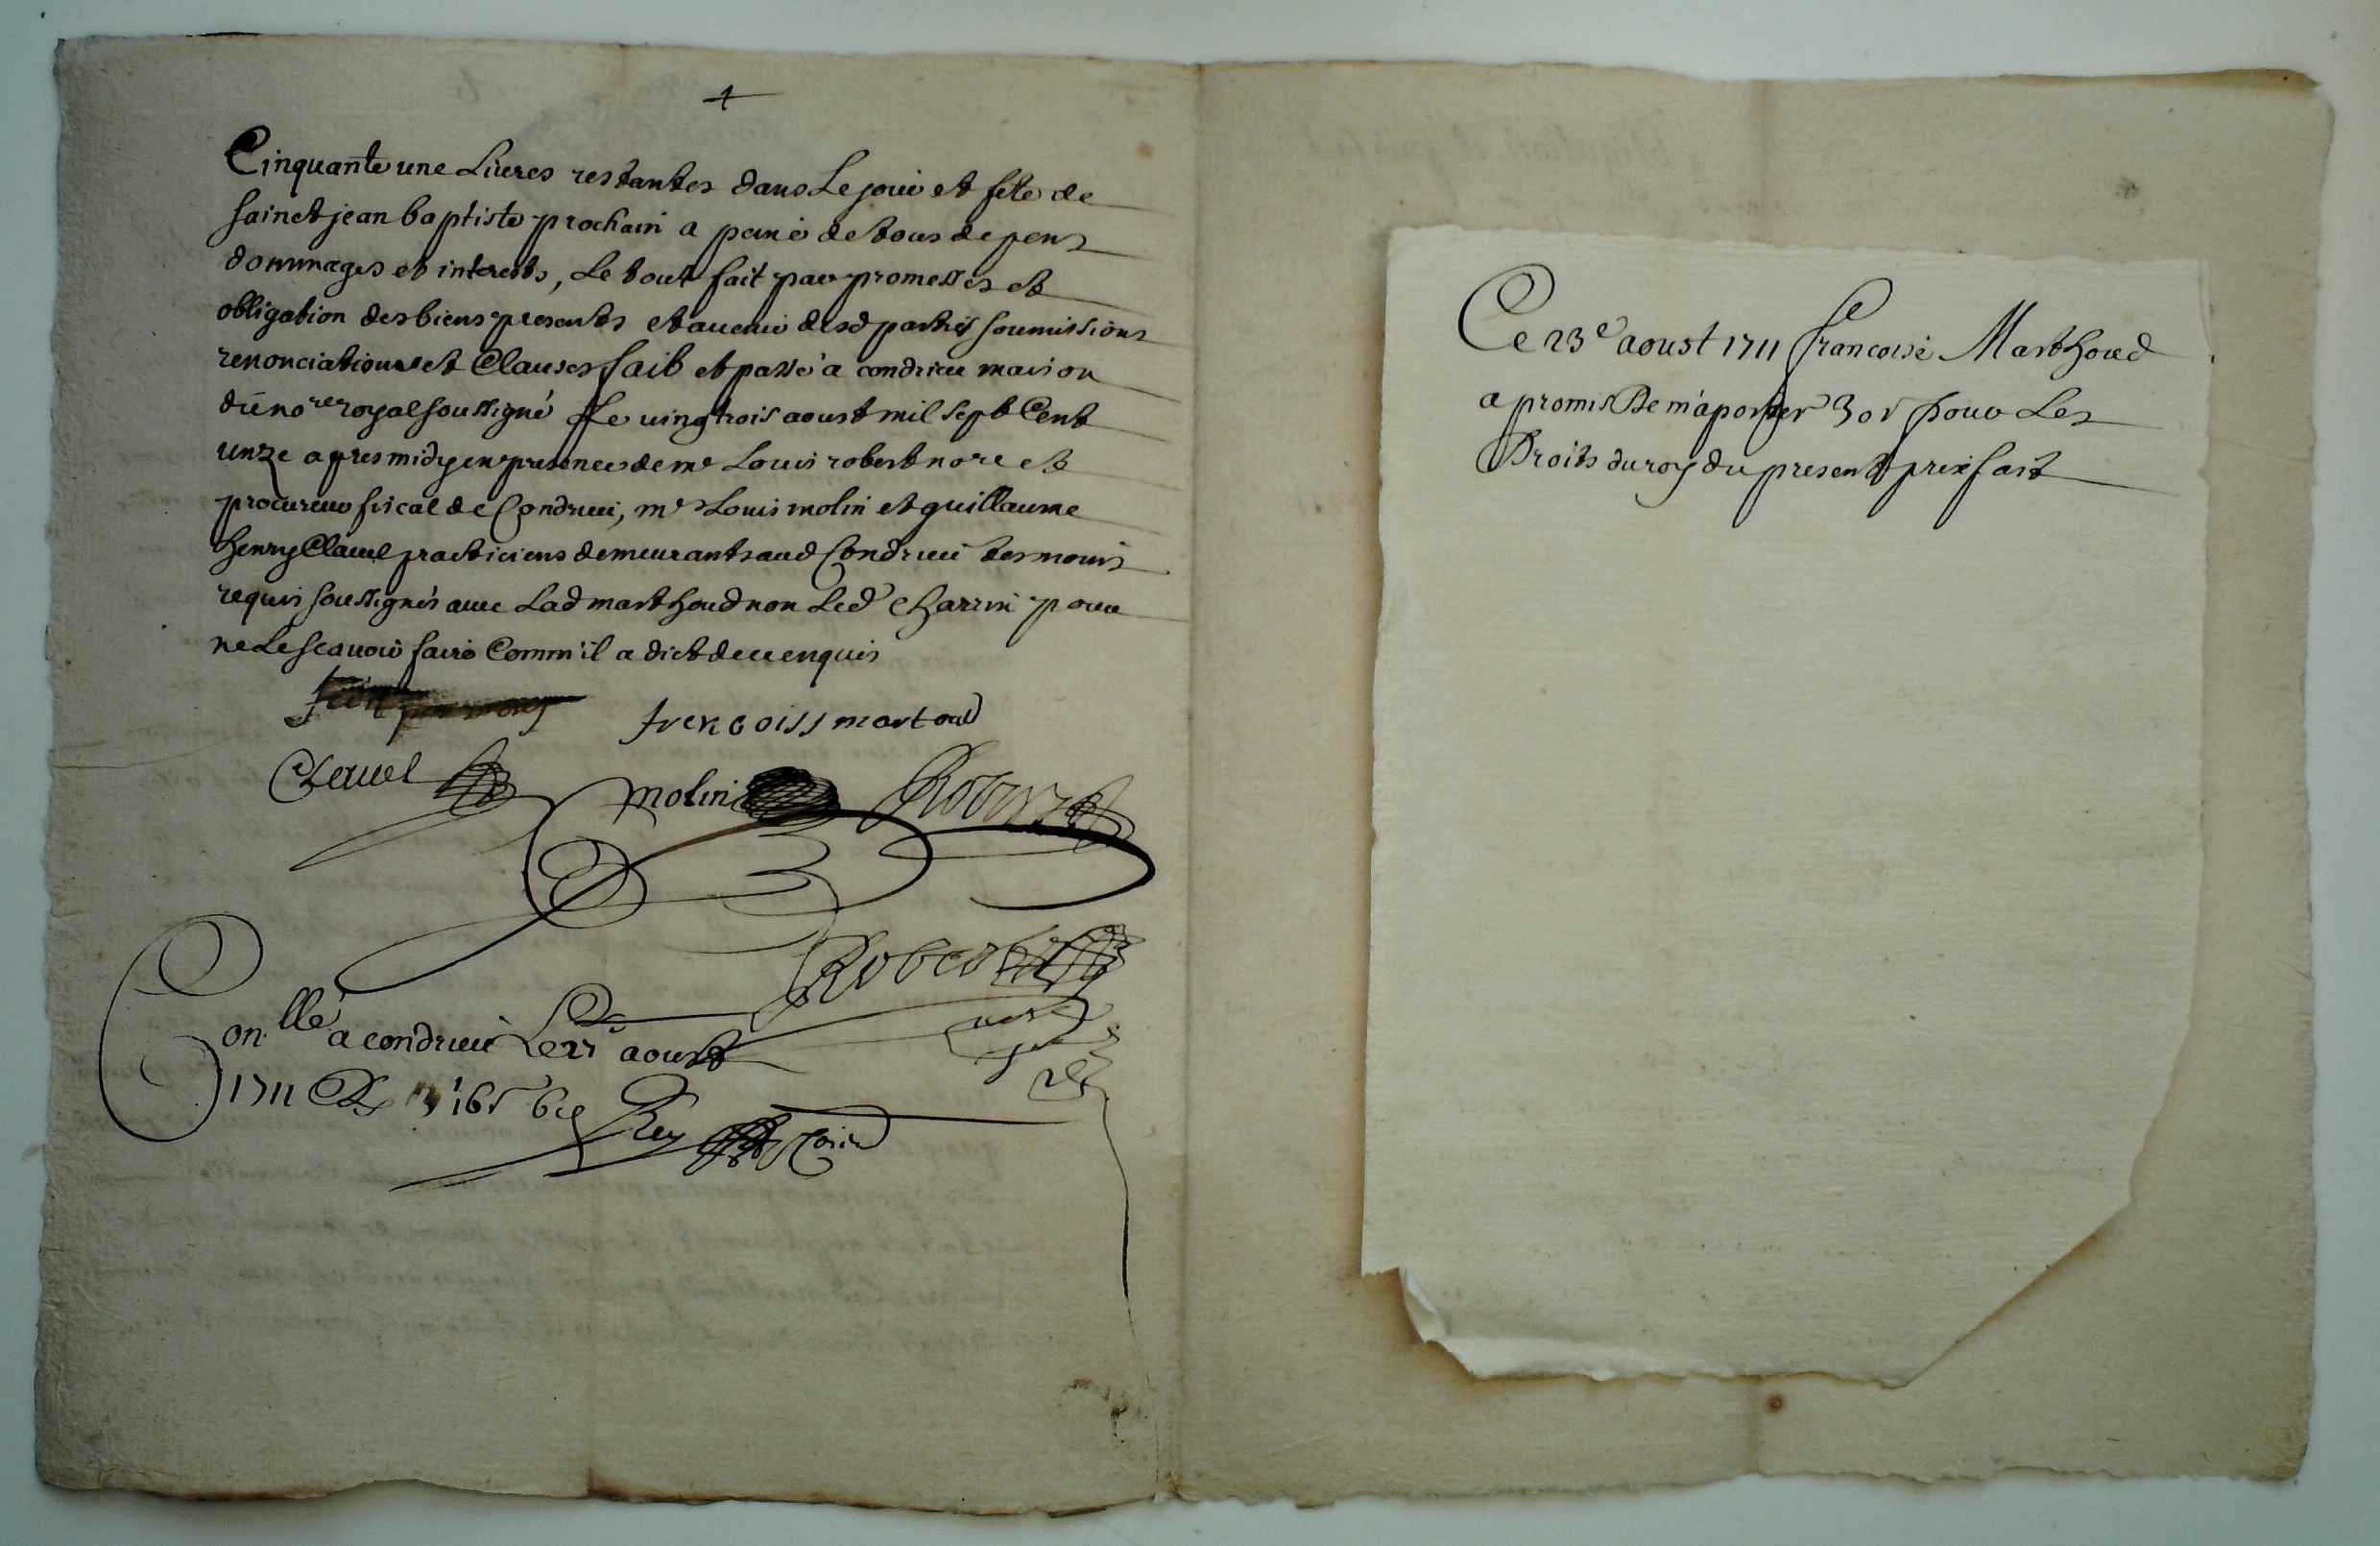 Cinquante une Liures restantes dans Le jour et fete de
sainct jean baptiste prochain a peine de tous depens
dommages et interests, Le tout fait par promesses et
obligation des biens presents et auenir desd parties soumissions
renonciations et Clauses fait et passé a condrieu maison
du nore royal soussigné Le uingtrois aoust mil sept Cent
unze apres midy en presence de me Louis robert nore et
procureur fiscal de Condrieu, me Louis molin et guillaume
henry Clauel practiciens demeurants aud Condrieu tesmoins
requis soussignés auec Lad marthoud non Led Charrin pour
ne Le scauoir faire Comm'il a dict de ce enquis
frencoiss martoud
Clauel molin Robert
Robert
Conllé a condrieu Le 27e aoust
1711 Rey
Ce 23e aoust 1711 francoise Marthoud
a promis De m'aporter 30s pour Les
Droits du roy du present prixfait